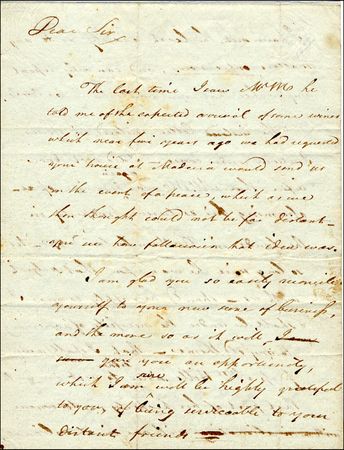 Dear Sir
The last time I saw Mr M he
told me of the expected arrival of some wines
which near five years ago we had requested
your house at Madeira would send us
in the event of a peace, which as we
then thought could not be far distant -
you see how fallacious that idea was.
I am glad you so easily reconcile
yourself to your new line of business,
and the more so as it will I
give you an opportunity,
sure
which I am will be highly grateful
to you, of being serviceable to your
distant friends